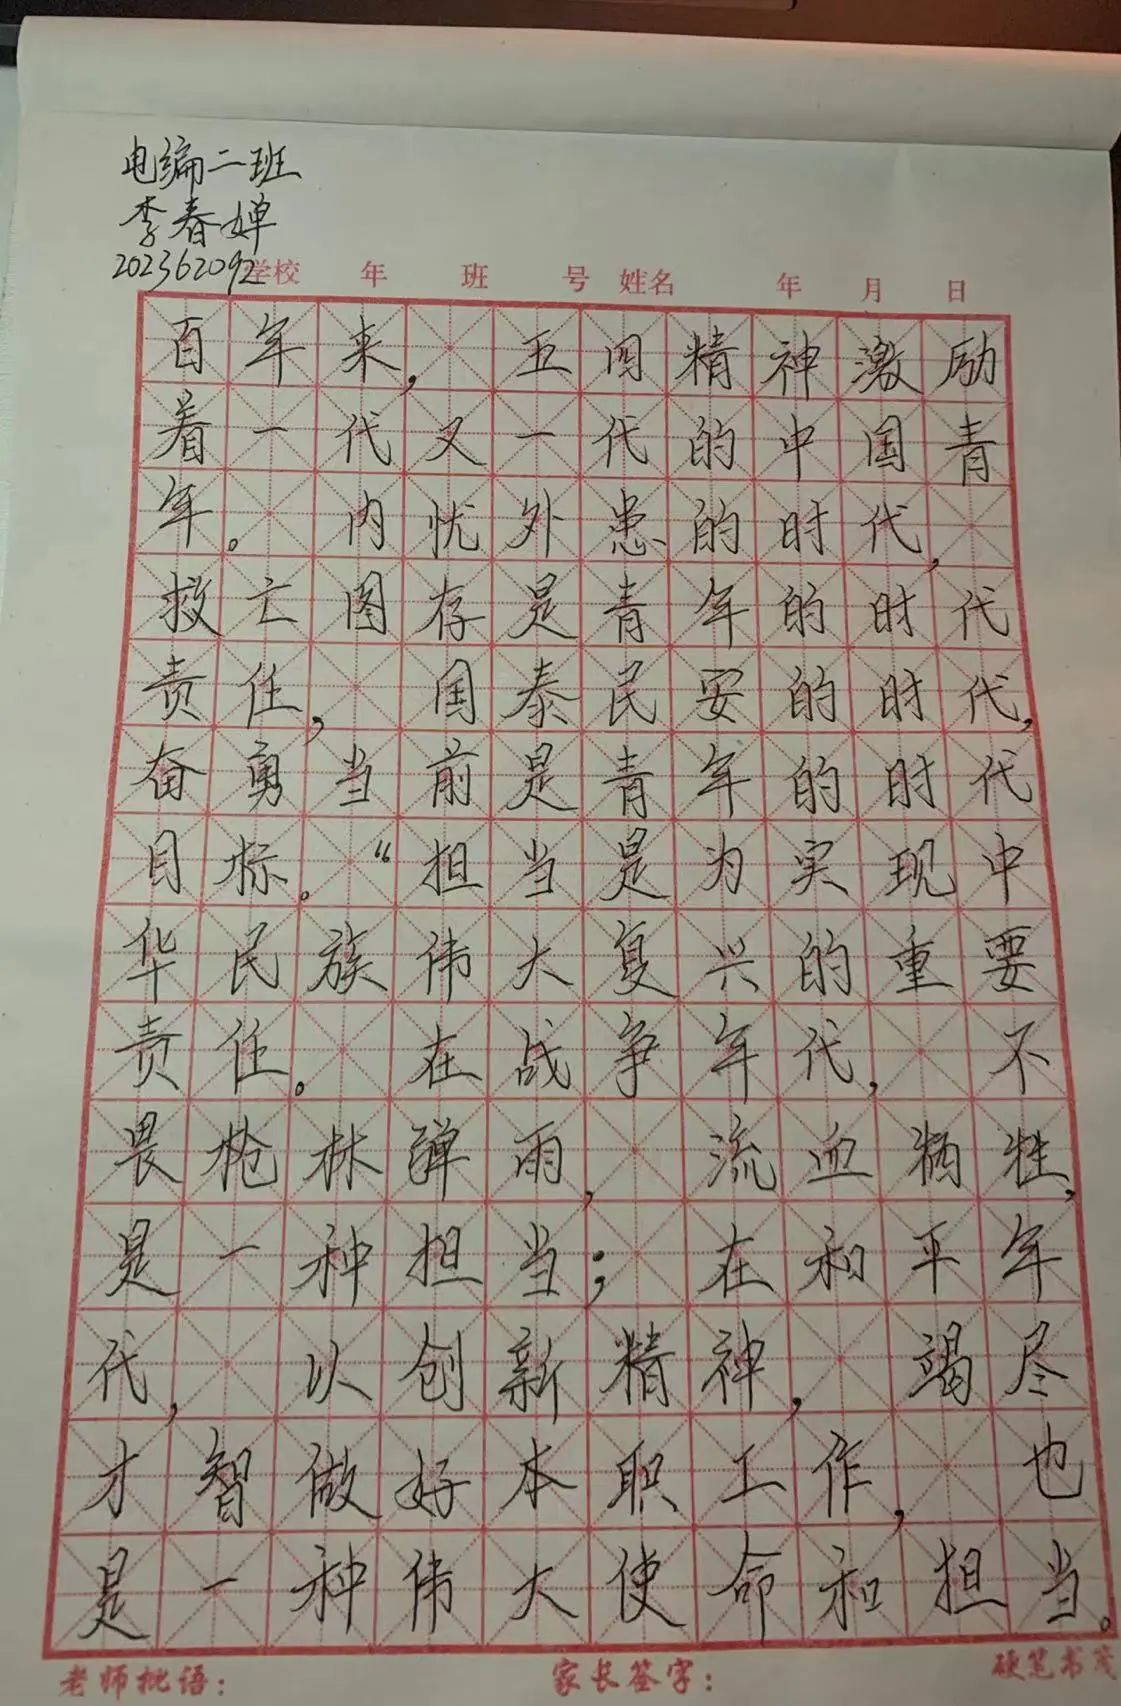 电编二班
李春婵
202362092
学校 年 班 号 姓名 年 月 日
百年来，五四精神激励
着一代又一代的中国青
年。内忧外患的时代，
救亡图存是青年的时代
责任，国泰民安的时代，
奋勇当前是青年的时代
目标。“担当是为实现中
华民族伟大复兴的重要
责任。在战争年代，不
畏枪林弹雨，流血牺牲，
是一种担当；在和平年
代，以创新精神，竭尽
才智做好本职工作，也
是一种伟大使命和担当。
老师批语： 家长签字： 硬笔书笺